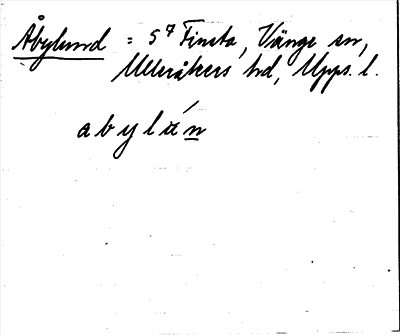 Åbylund = 5⁷ Finsta, Vänge sn,
Ulleråkers hd, Upps. l.
abylún